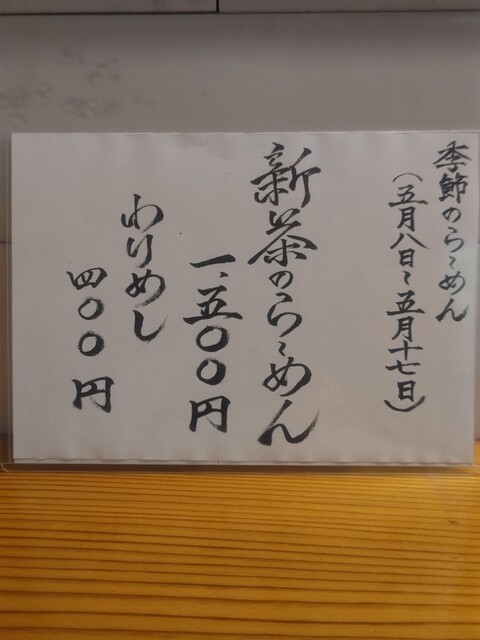 季節のらーめん
(五月八日~五月十七日)
新茶のらーめん
一、五〇〇円
わりめし
四〇〇円